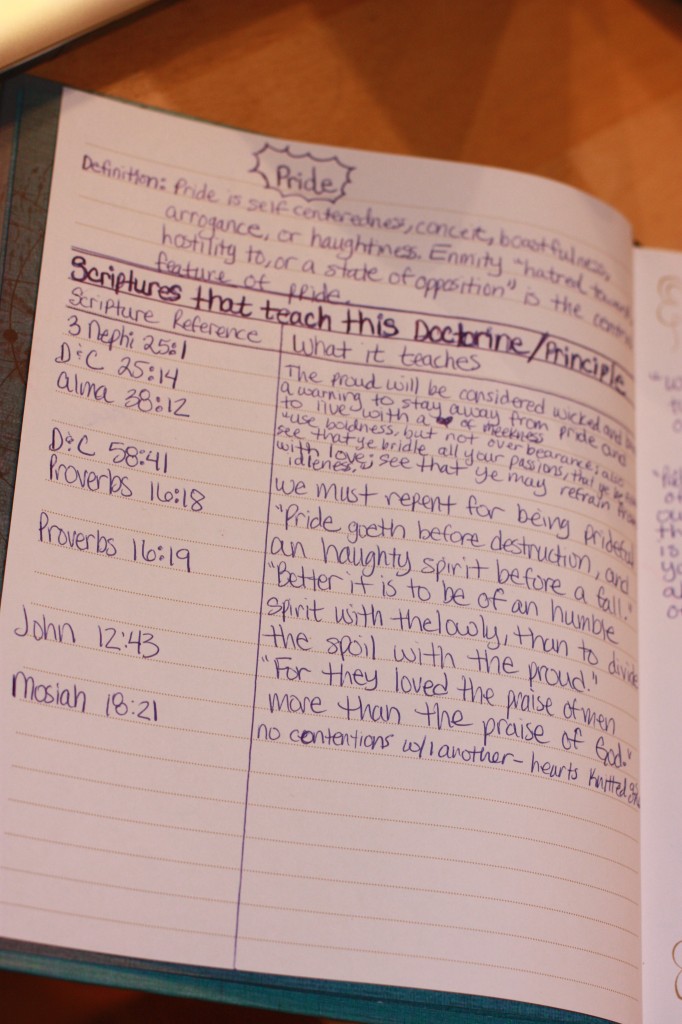 Pride
Definition: Pride is self-centerednes, conceit, boastfulness,
arrogance, or haughtiness. Enmity "hatred toward
hostility to, or a state of opposition" is the central
feature of pride.
Scriptures that teach this Doctorine/Principle
Scripture Reference
What it teaches
3 Nephi 25:1
The proud will be considered wicked and
D&C 25:14
a warning to stay away from pride and
to live with a of meekness
Alma 38:12
"use boldness, but not over bearance; also
see that ye bridle all your passions, that ye be
with love; see that ye may refrain from
idlenes."
D&C 58:41
we must repent for being prideful
Proverbs 16:18
"Pride goeth before destruction, and
an haughty spirit before a fall."
Proverbs 16:19
"Better it is to be of an humble
spirit with the lowly, than to divide
the spoil with the proud."
John 12:43
"For they loved the praise of men
more than the praise of God."
Mosiah 18:21
no contentions w/1 another - hearts knitted